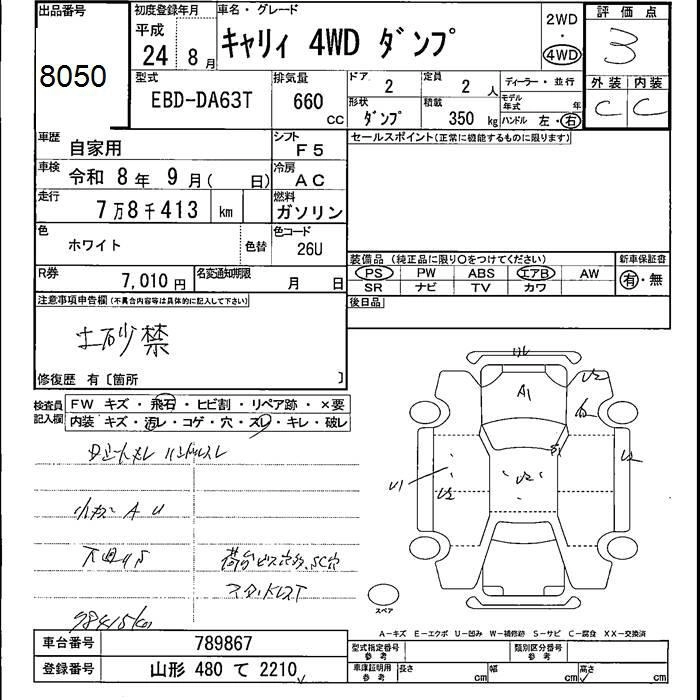 出品番号
8050
初度登録年月
平成
24 8月
車名・グレード
キャリィ 4WD ダンプ
2WD
・
4WD
評価点
3
外装 内装
C C
型式
EBD-DA63T
排気量
660
cc
ドア
2
定員
2 人
ディーラー・並行
形状
ダンプ
積載
350 kg
モデル年式 年
ハンドル 左・右
車歴
自家用
シフト
F5
セールスポイント(正常に機能するものに限ります)
車検
令和 8年 9月( 日)
冷房
AC
走行
7万8千413 km
燃料
ガソリン
色
ホワイト
色替
色コード
26U
装備品 (純正品に限り○をつけてください)
新車保証書
PS PW ABS エアB AW
SR ナビ TV カワ
有・無
R券
7,010円
名変通知期限
月 日
後日品
注意事項申告欄(不具合内容等は具体的に記入して下さい)
土砂禁
修復歴 有〔箇所 〕
検査員
記入欄
FW キズ・飛石・ヒビ割・リペア跡・×要
内装 キズ・汚レ・コゲ・穴・スレ・キレ・破レ
ハンドルスレ
小キズ A U
下廻りS
スタッドレスT
78415km
A1
U2
U1
U2
U2
U2
S1
スペア
A-キズ E-エクボ U-凹み W-補修跡 S-サビ C-腐食 XX-交換済
車台番号
789867
登録番号
山形 480 て 2210
型式指定番号
参考
類別区分番号
参考
車庫証明用
参考
長さ cm
幅 cm
高さ cm